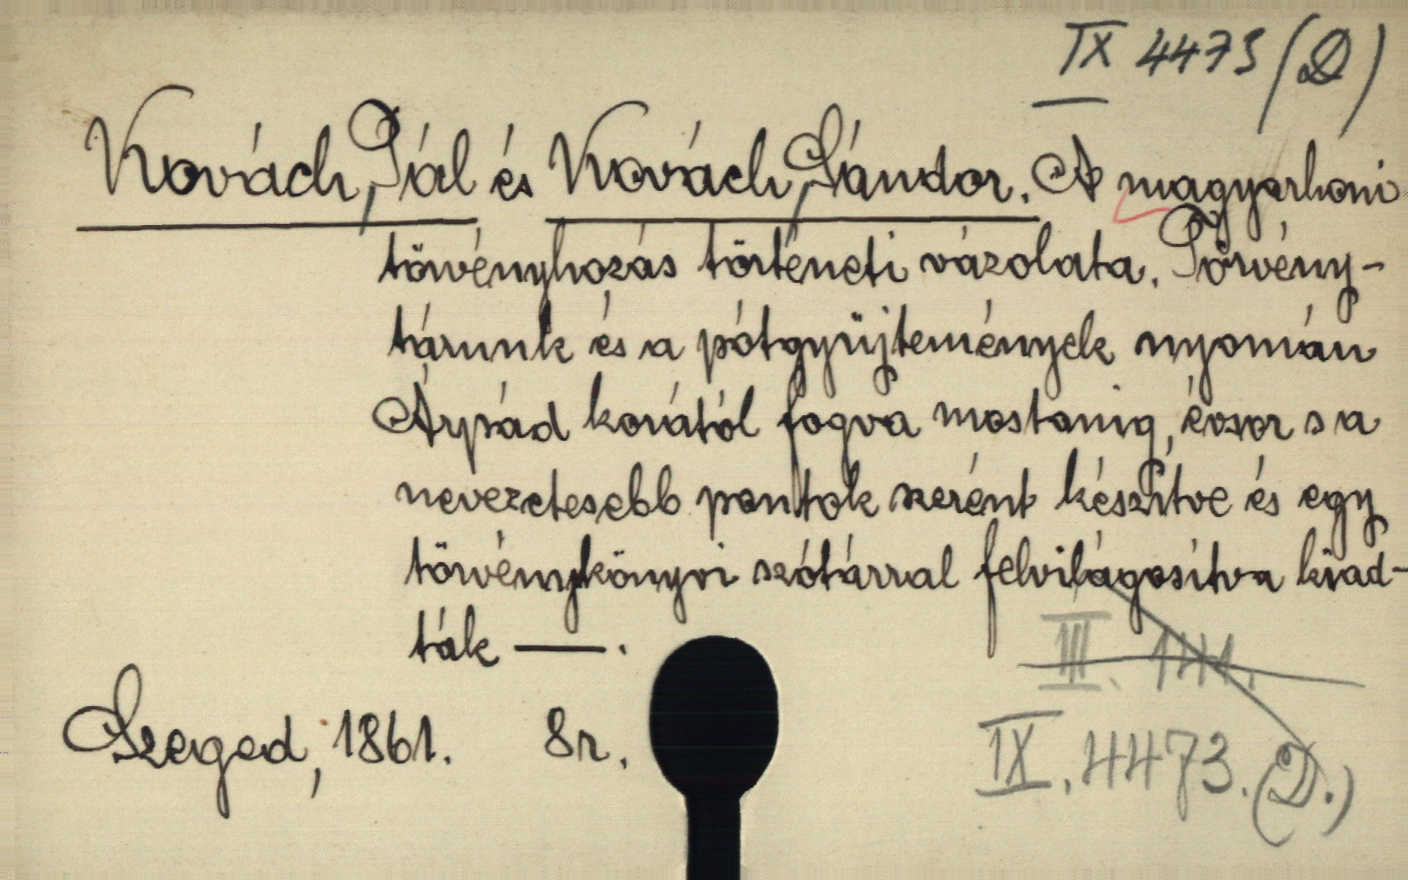 IX 4473 (D)
Kovách, Pál és Kovách, Sándor. A magyarhoni
törvényhozás történeti vázolata. Törvény-
tárunk és a pótgyüjtemények nyomán
Árpád korától fogva mostanig, évsor s a
nevezetesebb pontok szerént készítve és egy
törvénykönyvi szótárral felvilágosítva kiad-
ták —.
III. 141.
Szeged, 1861. 8r.
IX. 4473. (D.)